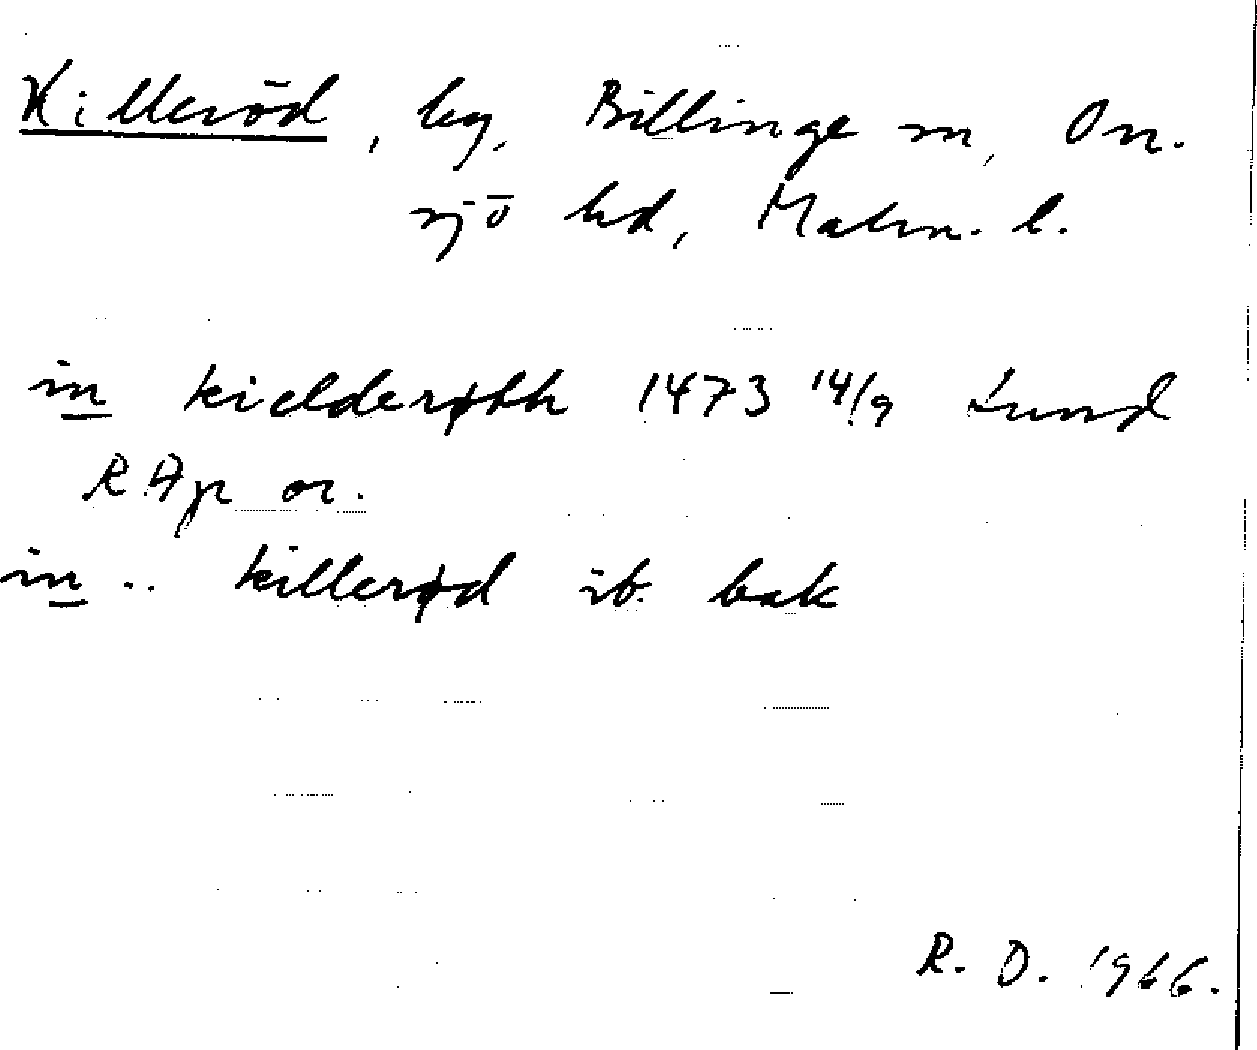 Killeröd, by, Billinge sn, On.
sjö hd, Malm. l.
in kielderøth 1473 14/9 Lund
RAp or.
in .. killerød ib. bak
R. D. 1966.